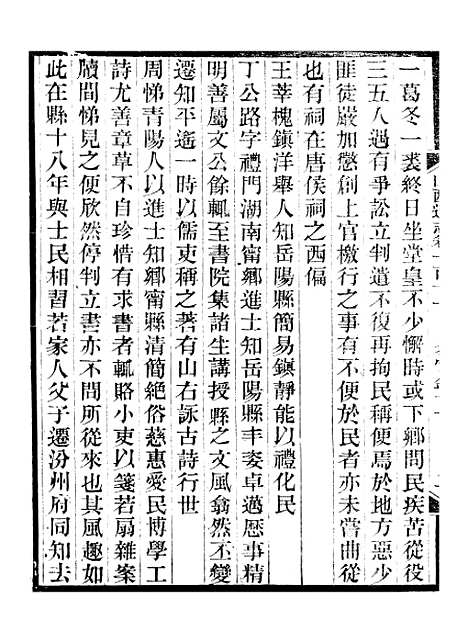 一葛冬一裘終日坐堂皇不少懈時或下鄉問民疾苦從役
三五人遇有爭訟立判遣不復再拘民稱便焉於地方惡少
匪徒嚴加懲創上官檄行之事有不便於民者亦未嘗曲從
也有祠在唐侯祠之西偏
王莘槐鎮洋舉人知岳陽縣簡易鎮靜能以禮化民
丁公路字禮門湖南甯鄉進士知岳陽縣丰姿卓邁歷事精
明善屬文公餘輒至書院集諸生講授縣之文風翕然丕變
遷知平遙一時以儒吏稱之著有山右詠古詩行世
周悌青陽人以進士知鄉甯縣清簡絕俗慈惠愛民博學工
詩尤善章草不自珍惜有求書者輒賂小吏以箋若扇雜案
牘間悌見之便欣然停判立書亦不問所從來也其風趣如
此在縣十八年與士民相習若家人父子遷汾州府同知去